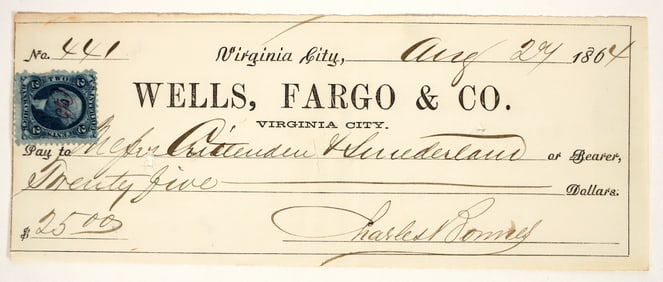 No. 441 Virginia City, Aug 27 1864
WELLS, FARGO & CO.
VIRGINIA CITY.
TWO
CENTS
Pay to Messrs Crittenden & Sunderland or Bearer,
Twenty five Dollars.
$ 25 00 Charles Bonney